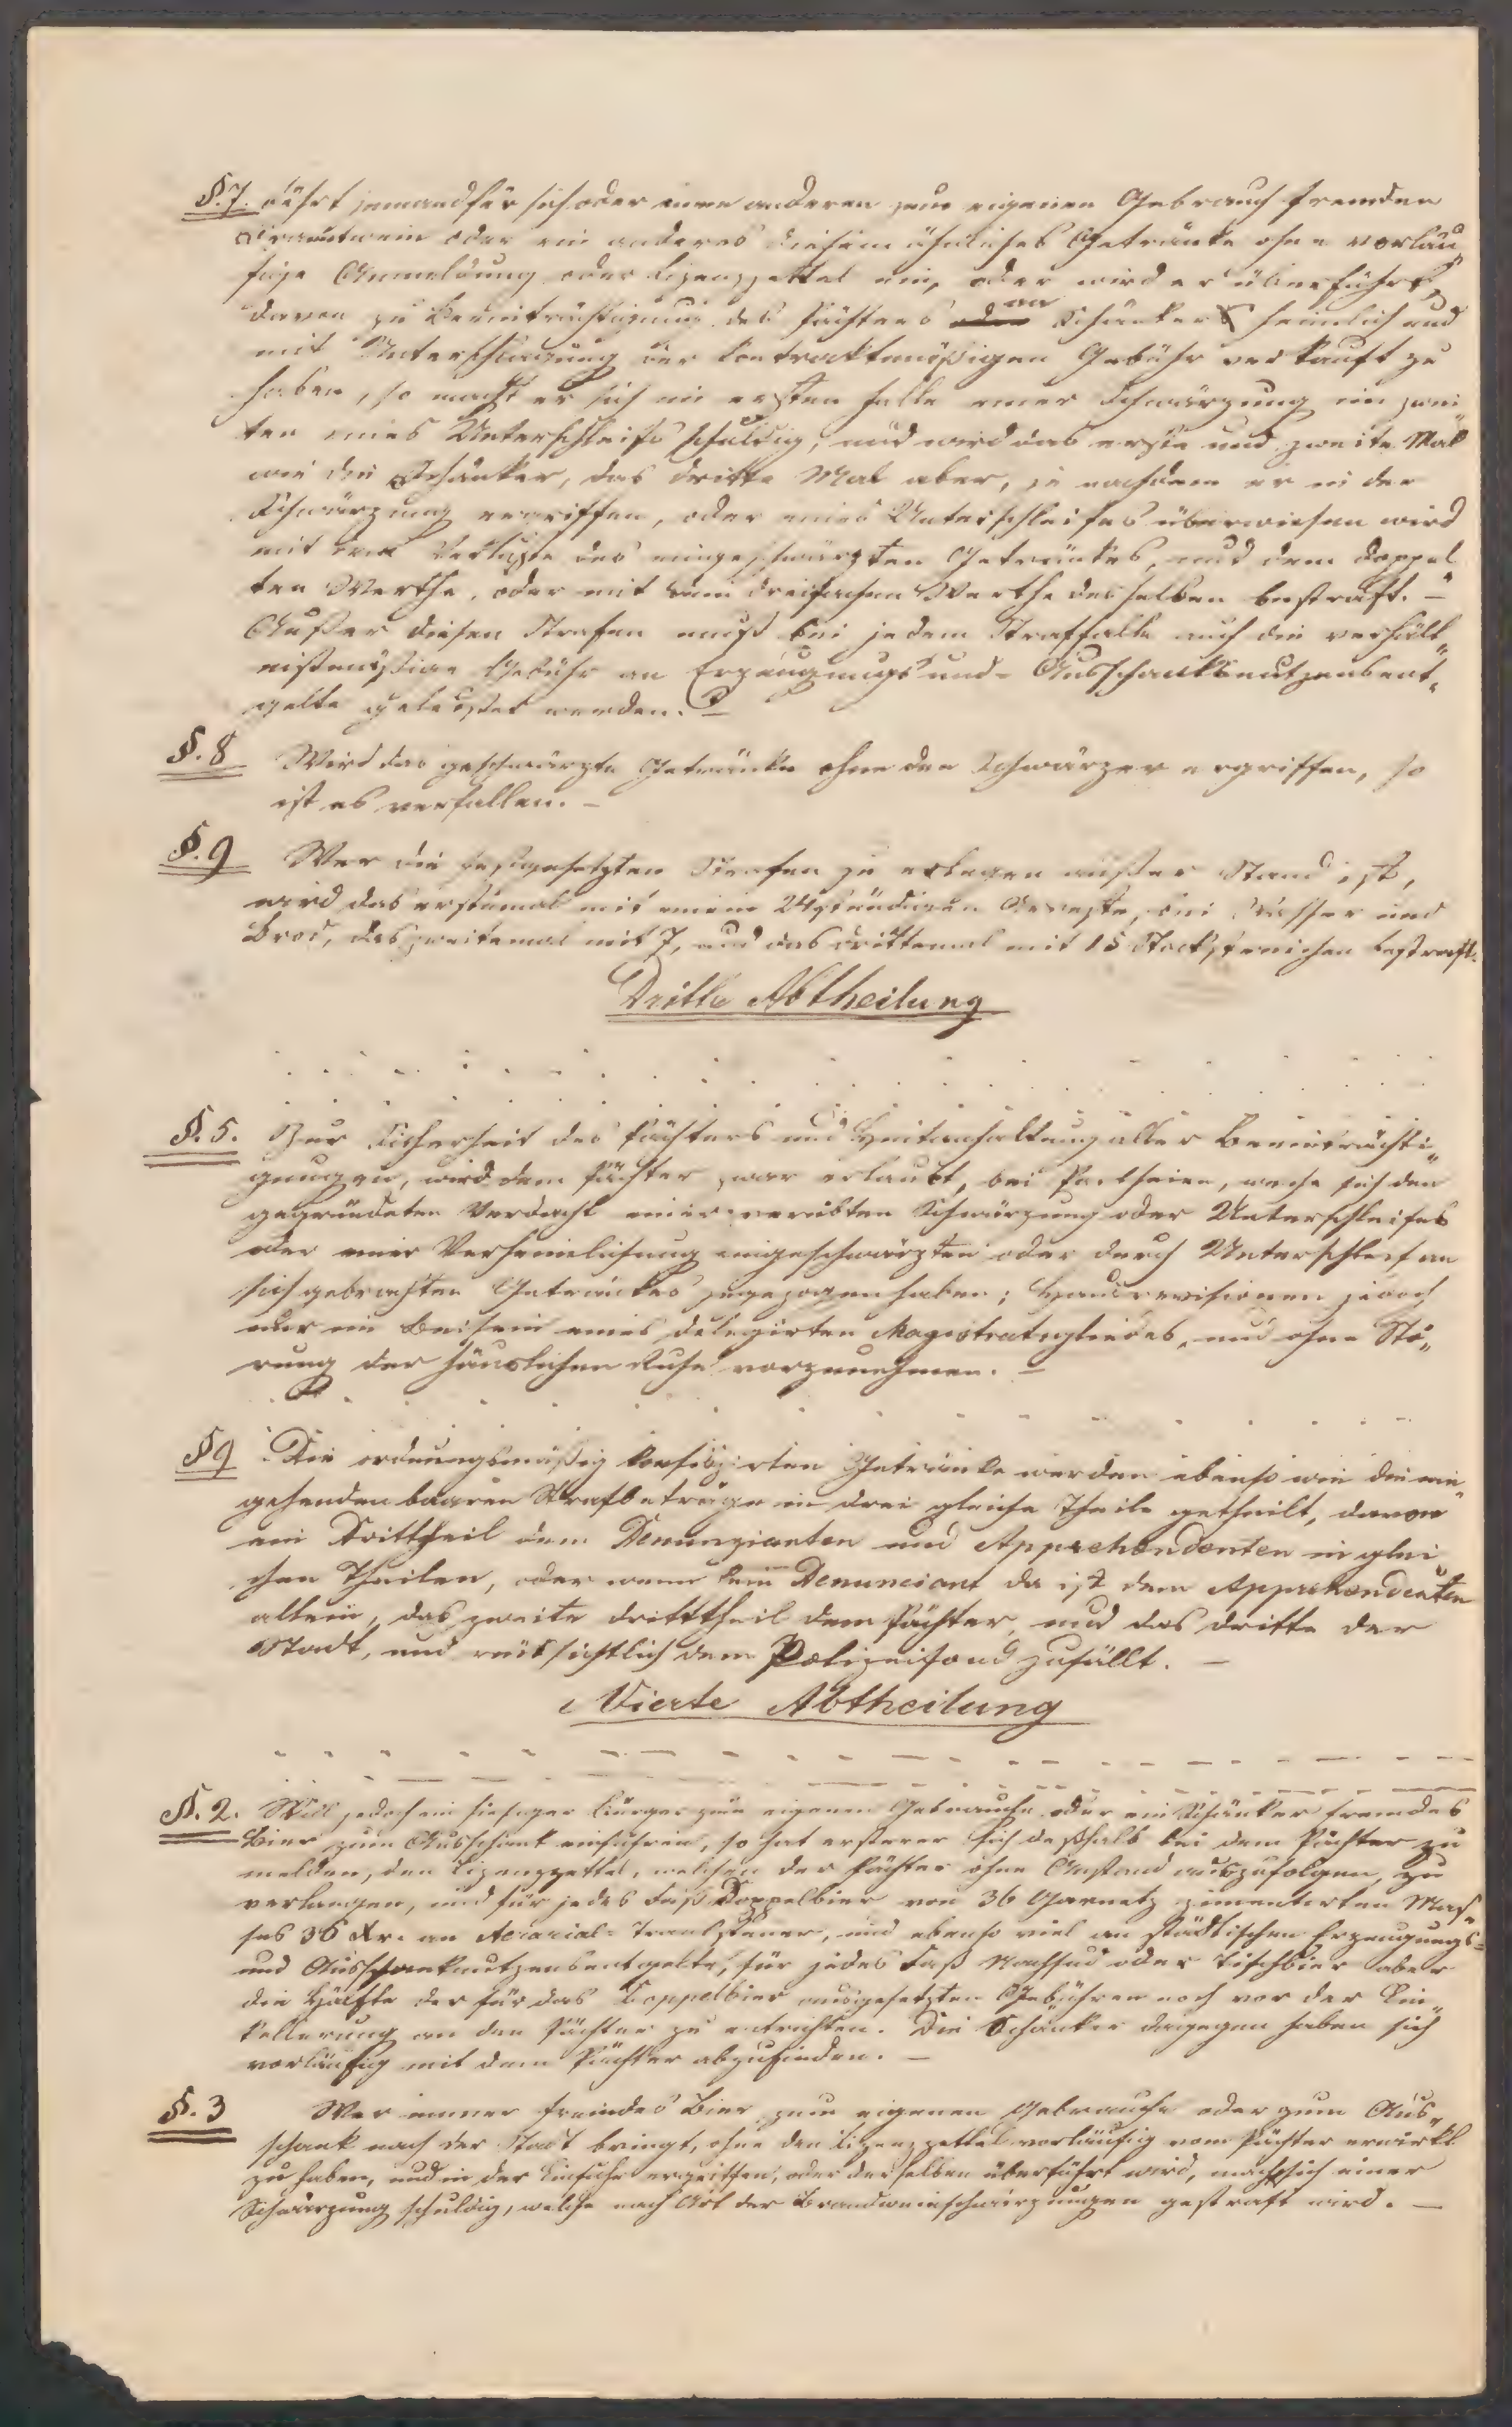 §. 7. Führt jemand für sich oder einen anderen zum eigenen Gebrauch fremden
Brandwein oder ein anderes diesem ähnliches Getränke ohne vorläu„
fige Anmeldung oder Lizenzzettel ein, oder wird er überführt,
davon zu Beeinträchtigung des Pächters an Schänker heimlich und
mit Unterschlagung der kontraktmäßigen Gebühr verkauft zu
haben, so macht er sich im ersten Falle einer Schwärzung im zwei„
ten eines Unterschleifs schuldig, und wird das erste und zweite Mal
wie die Schänker, das dritte Mal aber, je nachdem er in der
Schwärzung ergriffen, oder eines Unterschleifes überwiesen wird
mit dem Verluste des eingeschwärzten Getränkes, und dem doppel„
ten Werthe, oder mit dem dreifachen Werthe desselben bestraft. –
Außer diesen Strafen muß bei jedem Straffalle auch die verhält„
nißmäßige Gebühr an Erzeugungs und Ausschanksnutzensent„
gelte geleistet werden. –
§. 8 Wird das geschwärzte Getränke ohne den Schwärzer ergriffen, so
ist es verfallen. –
§. 9 Wer die festgesetzten Strafen zu erlegen außer Stand ist,
wird das erstemal mit einem 24stündigen Arreste, bei Wasser und
Brod, das zweitemal mit 7, und das drittemal mit 15 Stockstreichen bestraft.
Dritte Abtheilung
§. 5. Zur Sicherheit des Pächters und Hintanhaltung aller Beeinträchti„
gungen, wird dem Pächter zwar erlaubt, bei Partheien, welche sich den
gegründeten Verdacht einer verübten Schwärzung oder Unterschleifes
oder einer Verheimlichung eingeschwärzten oder durch Unterschleif an
sich gebrachten Getränkes zugezogen haben; Hausrevisionen jedoch
nur im Beisein eines delegirten Magistratsgliedes, und ohne Stö„
rung der häuslichen Ruhe vorzunehmen. –
§ 9 Die ordnungsmäßig konfiszirten Getränke werden ebenso wie die ein„
gehenden baaren Strafbeträge in drei gleiche Theile getheilt, davon
ein Drittheil dem Denunzianten und Apprehendenten in glei„
chen Theilen, oder wenn kein Denunciant da ist dem Apprehendenten
allein, das zweite Dritttheil dem Pächter, und das dritte der
Stadt, und rücksichtlich dem Polizeifond zufällt. –
Vierte Abtheilung
§. 2. Will jedoch ein hiesiger Bürger zum eigenen Gebrauche oder ein Schänker fremdes
Bier zum Ausschank einführen, so hat ersterer sich deßhalb bei dem Pächter zu
melden, den Lizenzzettel, welchen der Pächter ohne Anstand auszufolgen, zu
verlangen, und für jedes Faß Doppelbier von 36 Garnetz zimentirten Mas„
ses 36 Xr. an Aerarial-Tranksteuer, und ebenso viel an städtischen Erzeugungs-
und Ausschanknutzensentgelte, für jedes Faß Nachsud oder Tischbier aber
die Hälfte der für das Doppelbier ausgesetzten Gebühren noch vor der Ein„
kellerung an den Pächter zu entrichten. Die Schänker dagegen haben sich
vorläufig mit dem Pächter abzufinden. –
§. 3 Wer immer fremdes Bier zum eigenen Gebrauche oder zum Aus„
schank nach der Stadt bringt, ohne den Lizenzzettel vorläufig vom Pächter erwirkt
zu haben, und in der Einfuhr ergriffen, oder derselben überführt wird, macht sich einer
Schwärzung schuldig, welche nach Art der Brandweinschwärzungen gestraft wird. –